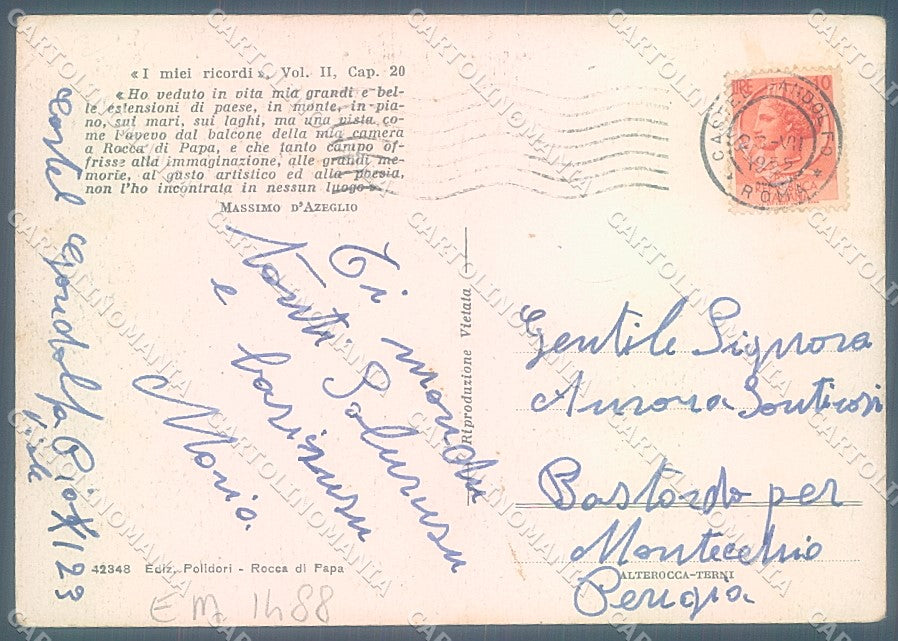 « I miei ricordi ». Vol. II, Cap. 20
« Ho veduto in vita mia grandi e bel-
le estensioni di paese, in monte, in pia-
no, sui mari, sui laghi, ma una vista co-
me l'avevo dal balcone della mia camera
a Rocca di Papa, e che tanto campo of-
frisse alla immaginazione, alle grandi me-
morie, al gusto artistico ed alla poesia,
non l'ho incontrata in nessun luogo »
MASSIMO D'AZEGLIO
Ti mando
tanti
e
Maria.
Castel Gondolfa Pio XI 23
Riproduzione Vietata
LIRE 10
CASTEL GANDOLFO
* ROMA *
Gentile Signora
Aurora
Bastardo per
Montecchio
Perugia
ALTEROCCA-TERNI
42348 Ediz. Polidori - Rocca di Papa
EM 1488
CARTOLINOMANIA